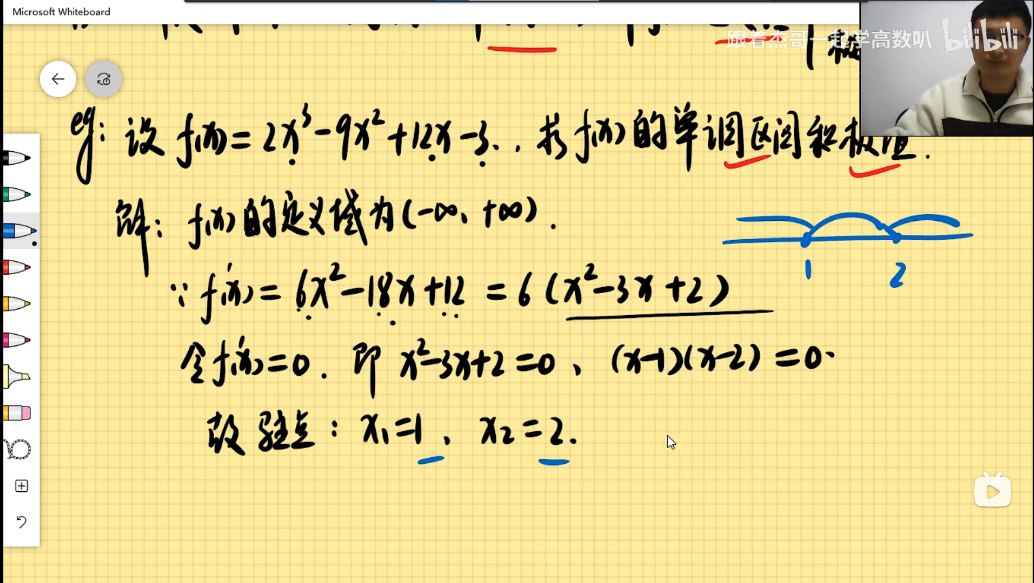 Microsoft Whiteboard
跟着杰哥一起学高数叭 bilibili
eg: 设 f(x)=2x³-9x²+12x-3., 求f(x)的单调区间和极值.
解: f(x)的定义域为(-∞, +∞).
∵ f'(x)= 6x²-18x+12 = 6(x²-3x+2)
1 2
令f'(x)=0. 即 x²-3x+2=0、(x-1)(x-2)=0.
故驻点: x₁=1、x₂=2.